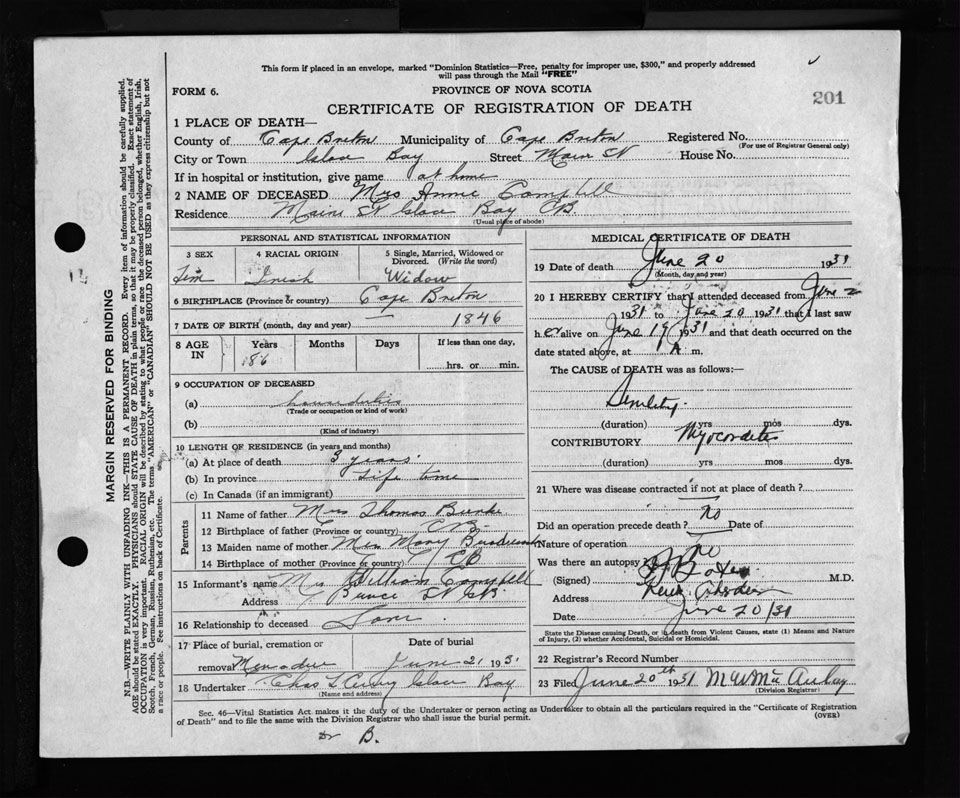 This form if placed in an envelope, marked "Dominion Statistics—Free, penalty for improper use, $300," and properly addressed
will pass through the Mail "FREE"
FORM 6.
PROVINCE OF NOVA SCOTIA
201
CERTIFICATE OF REGISTRATION OF DEATH
1 PLACE OF DEATH—
County of Cape Breton Municipality of Cape Breton Registered No.
(For use of Registrar General only)
City or Town Glace Bay Street Main St House No.
If in hospital or institution, give name at home
2 NAME OF DECEASED Mrs Annie Campbell
Residence Main St Glace Bay CB
(Usual place of abode)
PERSONAL AND STATISTICAL INFORMATION
3 SEX 4 RACIAL ORIGIN 5 Single, Married, Widowed or Divorced. (Write the word)
Fem Irish Widow
6 BIRTHPLACE (Province or country) Cape Breton
7 DATE OF BIRTH (month, day and year) 1846
8 AGE IN Years Months Days If less than one day,
86 hrs. or min.
9 OCCUPATION OF DECEASED
(a)
(Trade or occupation or kind of work)
(b)
(Kind of industry)
10 LENGTH OF RESIDENCE (in years and months)
(a) At place of death 3 years
(b) In province Life time
(c) In Canada (if an immigrant)
Parents
11 Name of father Mrs Thomas Burke
12 Birthplace of father (Province or country) CB
13 Maiden name of mother Mrs Mary
14 Birthplace of mother (Province or country) CB
15 Informant's name Mrs William Campbell
Address St CB
16 Relationship to deceased
17 Place of burial, cremation or removal Date of burial
June 21 1931
18 Undertaker Chas Glace Bay
(Name and address)
MEDICAL CERTIFICATE OF DEATH
19 Date of death June 20 1931
(Month, day and year)
20 I HEREBY CERTIFY that I attended deceased from June 2
1931 to June 20 1931 that I last saw
her alive on June 19 1931 and that death occurred on the
date stated above, at 1 A m.
The CAUSE of DEATH was as follows:—
Senility
(duration) yrs mos dys.
CONTRIBUTORY Myocarditis
(duration) yrs mos dys.
21 Where was disease contracted if not at place of death?
Did an operation precede death? No Date of
Nature of operation
Was there an autopsy No
(Signed) M.D.
Address
Date June 20/31
State the Disease causing Death, or in death from Violent Causes, state (1) Means and Nature
of Injury, (2) whether Accidental, Suicidal or Homicidal.
22 Registrar's Record Number
23 Filed June 20th 1931
(Division Registrar)
Sec. 46—Vital Statistics Act makes it the duty of the Undertaker or person acting as Undertaker to obtain all the particulars required in the "Certificate of Registration
of Death" and to file the same with the Division Registrar who shall issue the burial permit.
(OVER)
Dr B.
MARGIN RESERVED FOR BINDING
N.B.—WRITE PLAINLY WITH UNFADING INK—THIS IS A PERMANENT RECORD. Every item of information should be carefully supplied.
AGE should be stated EXACTLY. PHYSICIANS should STATE CAUSE OF DEATH in plain terms, so that it may be properly classified. Exact statement of
OCCUPATION is very important. RACIAL ORIGIN will be described by stating to what people or race the deceased person belonged, whether English, Irish,
Scotch, French, German, Russian, Ruthenian, etc. The terms "AMERICAN" or "CANADIAN" SHOULD NOT BE USED as they express citizenship but not
a race or people. See instructions on back of Certificate.